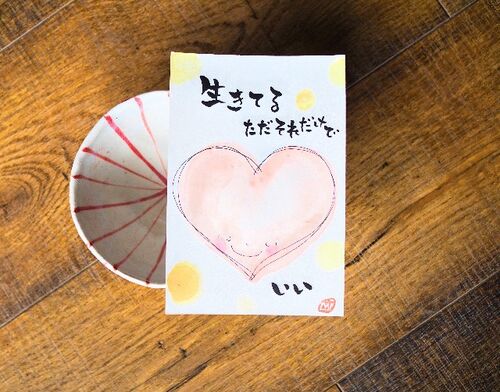 生きてる
ただそれだけで
いい